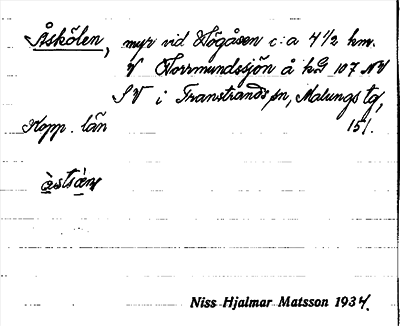 Åskölen, myr vid Högåsen c:a 4 1/2 km.
V Horrmundssjön å kbl 107 NV
SV i Transtrands sn, Malungs tg,
Kopp. län 151.
Niss Hjalmar Matsson 1934.